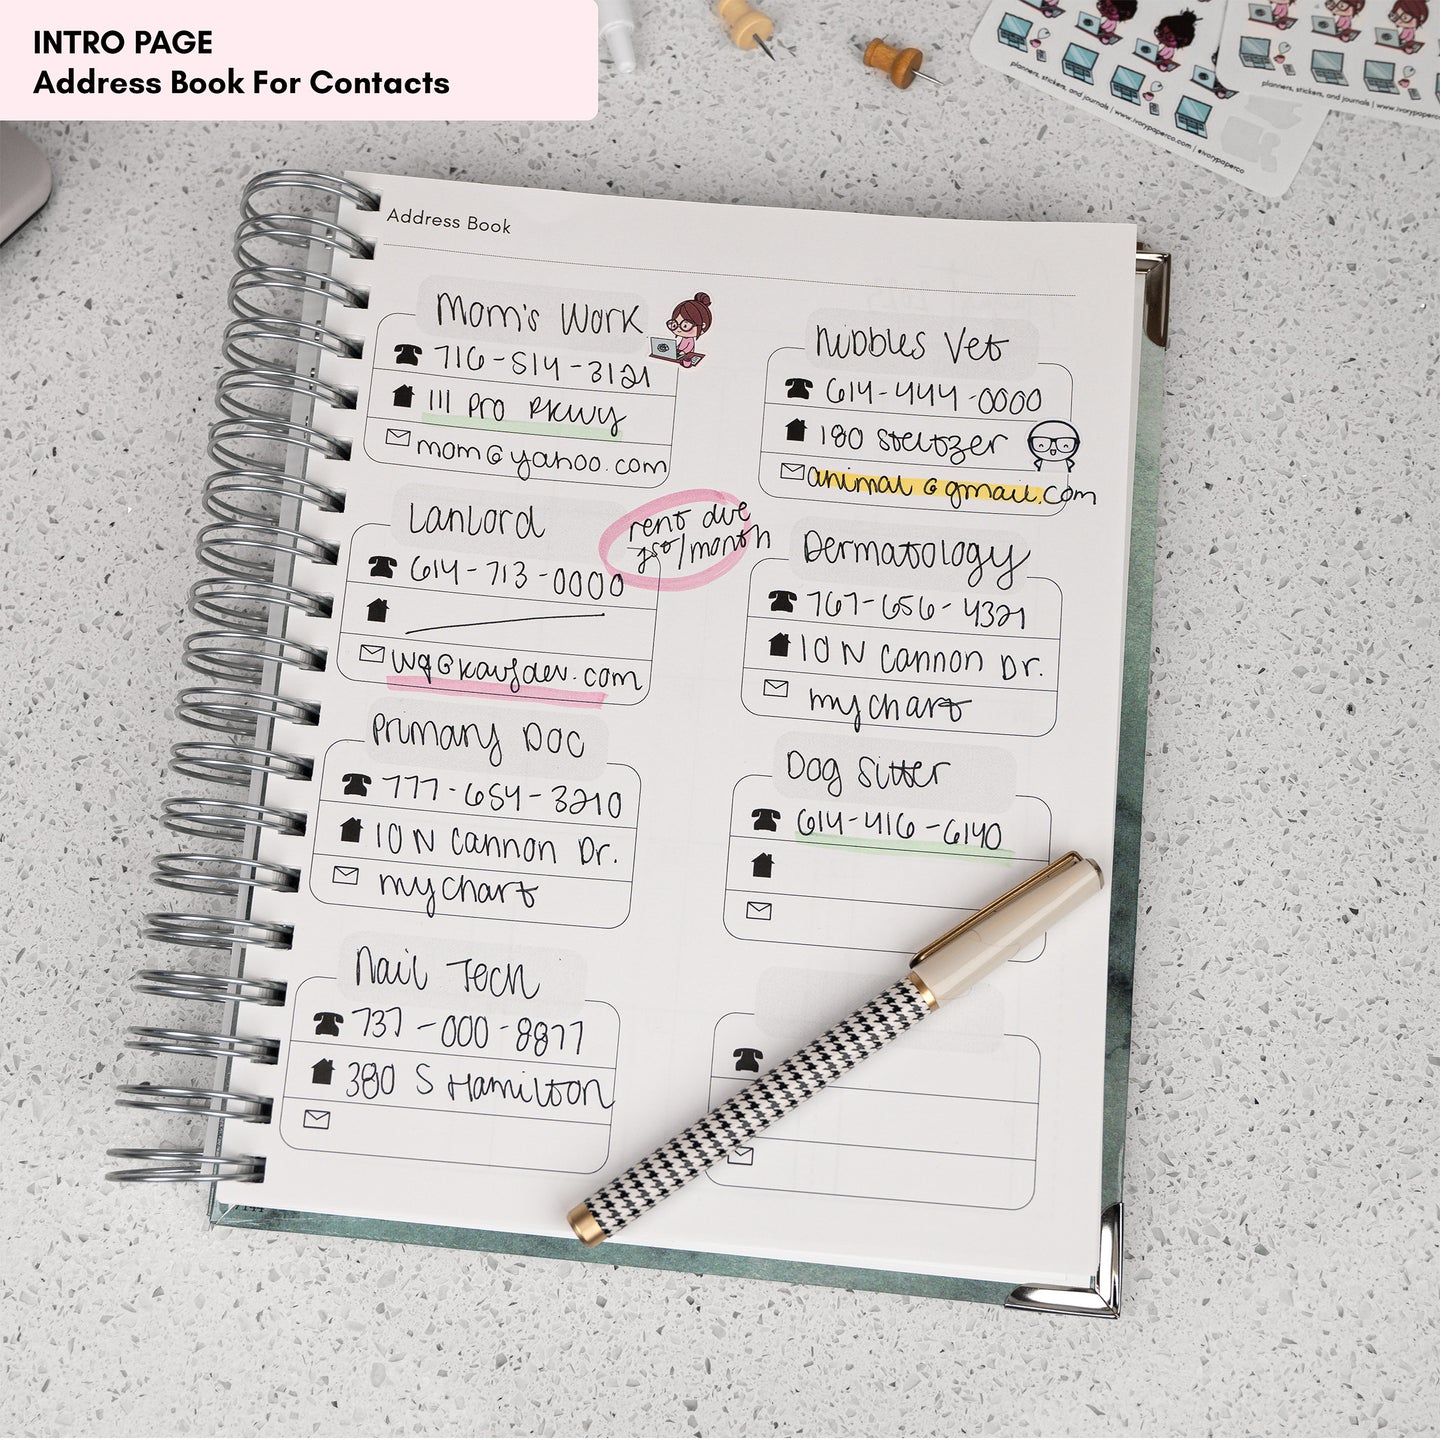 INTRO PAGE
Address Book For Contacts
planners, stickers, and journals | www.ivorypaperco.com | eivorypaperco
planners, stickers, and journals | www.ivorypaperco
Address Book
Mom's Work
716-514-3121
111 Pro Pkwy
mom@yahoo.com
Nibbles Vet
614-444-0000
180 Steltzer
animal@gmail.com
Lanlord
614-713-0000
rent due
1st/month
Dermatology
767-656-4321
10 N Cannon Dr.
mychart
Primary Doc
777-654-3210
10 N Cannon Dr.
mychart
Dog Sitter
614-416-6140
Nail Tech
737-000-8877
380 S Hamilton